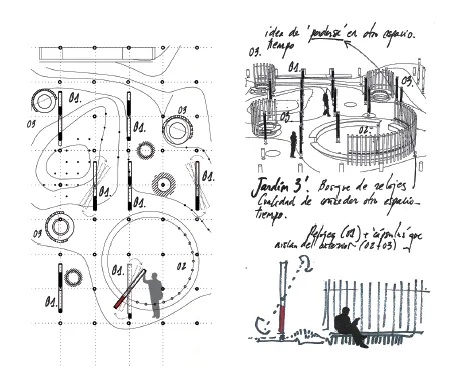 01.
01.
03
03
01.
01.
01.
03
01.
01.
02
idea de 'perderse' en otro espacio.
tiempo
03.
01.
03.
03.
02.
Jardín 3: Bosque de relojes
Cualidad de esconder otro espacio-
tiempo.
Relojes (01) + cápsulas que
aislan del exterior (02+03)